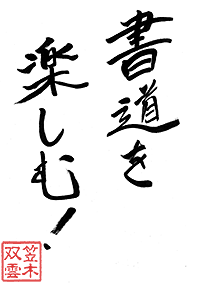 書道を
楽しむ!
笠木
双雲